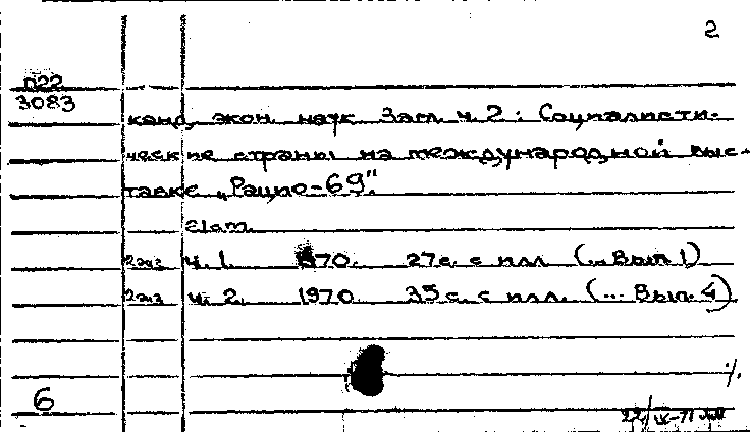 2
П22
3083
канд. экон. наук Загл. ч. 2: Социалисти-
ческие страны на международной выс-
тавке „Рацио-69".
2 экз ч. 1. 1970. 27 с. с илл (... Вып 1)
2 экз ч. 2. 1970 35 с. с илл. (... Вып. 4)
6
22/IX-71